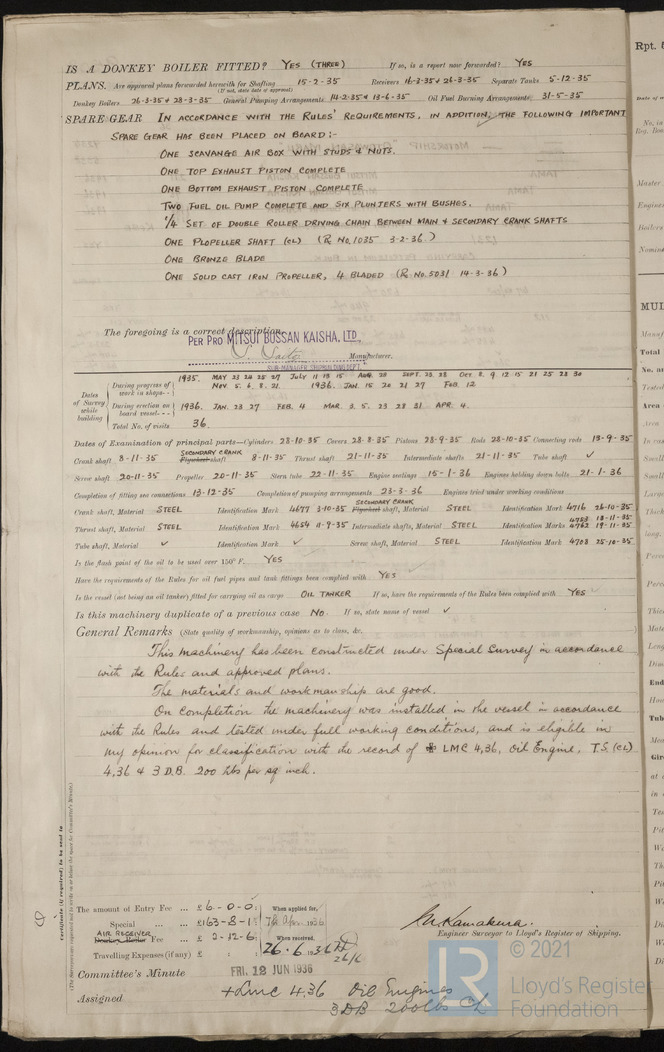 IS A DONKEY BOILER FITTED? YES (THREE) If so, is a report now forwarded? YES
PLANS. Are approved plans forwarded herewith for Shafting 15-2-35 Receivers 16-3-35 & 26-3-35 Separate Tanks 5-12-35
(If not, state date of approval)
Donkey Boilers 26-3-35 & 28-3-35 General Pumping Arrangements 14-2-35 & 13-6-35 Oil Fuel Burning Arrangements 31-5-35
SPARE GEAR IN ACCORDANCE WITH THE RULES' REQUIREMENTS, IN ADDITION, THE FOLLOWING IMPORTANT
SPARE GEAR HAS BEEN PLACED ON BOARD:-
ONE SCAVANGE AIR BOX WITH STUDS & NUTS.
ONE TOP EXHAUST PISTON COMPLETE
ONE BOTTOM EXHAUST PISTON COMPLETE
TWO FUEL OIL PUMP COMPLETE AND SIX PLUNJERS WITH BUSHES.
1/4 SET OF DOUBLE ROLLER DRIVING CHAIN BETWEEN MAIN & SECONDARY CRANK SHAFTS
ONE PLOPELLER SHAFT (CL) (R. No. 1035 3-2-36)
ONE BRONZE BLADE
ONE SOLID CAST IRON PROPELLER, 4 BLADED (R. No. 5031 14-3-36)
The foregoing is a correct description.
PER PRO MITSUI BUSSAN KAISHA, LTD.,
Manufacturer.
SUB-MANAGER SHIPBUILDING DEPT.
Dates of Survey while building
During progress of work in shops-- 1935. MAY 23 24 25 27 JULY 11 13 15 AUG. 28 SEPT. 23 28 OCT. 8. 9 12 15 21 25 28 30
NOV. 5. 6. 8. 21. 1936. JAN. 15 20 21 27 FEB. 12
During erection on board vessel--- 1936. JAN. 23 27 FEB. 4 MAR. 3. 5. 23 28 31 APR. 4.
Total No. of visits 36.
Dates of Examination of principal parts—Cylinders 28-10-35 Covers 28-8-35 Pistons 28-9-35 Rods 28-10-35 Connecting rods 13-9-35
SECONDARY CRANK
Crank shaft 8-11-35 Flywheel shaft 8-11-35 Thrust shaft 21-11-35 Intermediate shafts 21-11-35 Tube shaft ✓
Screw shaft 20-11-35 Propeller 20-11-35 Stern tube 22-11-35 Engine seatings 15-1-36 Engines holding down bolts 21-1-36
Completion of fitting sea connections 13-12-35 Completion of pumping arrangements 23-3-36 Engines tried under working conditions
SECONDARY CRANK
Crank shaft, Material STEEL Identification Mark 4677 3-10-35 Flywheel shaft, Material STEEL Identification Mark 4716 26-10-35
4758 18-11-35
Thrust shaft, Material STEEL Identification Mark 4654 11-9-35 Intermediate shafts, Material STEEL Identification Marks 4762 19-11-35
Tube shaft, Material ✓ Identification Mark ✓ Screw shaft, Material STEEL Identification Mark 4708 25-10-35
Is the flash point of the oil to be used over 150° F. YES
Have the requirements of the Rules for oil fuel pipes and tank fittings been complied with YES
Is the vessel (not being an oil tanker) fitted for carrying oil as cargo OIL TANKER If so, have the requirements of the Rules been complied with YES
Is this machinery duplicate of a previous case No. If so, state name of vessel ✓
General Remarks (State quality of workmanship, opinions as to class, &c.
This machinery has been constructed under Special Survey in accordance
with the Rules and approved plans.
The materials and workmanship are good.
On completion the machinery was installed in the vessel in accordance
with the Rules and tested under full working conditions, and is eligible in
my opinion for classification with the record of ✠ LMC 4,36, Oil Engine, T.S. (CL)
4,36 & 3 D.B. 200 lbs per sq inch.
The amount of Entry Fee ... £6-0-0: When applied for,
Special ... £163-8-1: 7th Apr 1936
AIR RECEIVER
Donkey Boiler Fee ... £ 2-12-6: When received,
Travelling Expenses (if any) £ : : 26.6.1936
26/6
M. Kamakura.
Engineer Surveyor to Lloyd's Register of Shipping.
Committee's Minute FRI. 12 JUN 1936
Assigned +LMC 4.36 Oil Engines
3DB 200lbs CL
© 2021
Lloyd's Register
Foundation
LR
Rpt.
MUL
Total